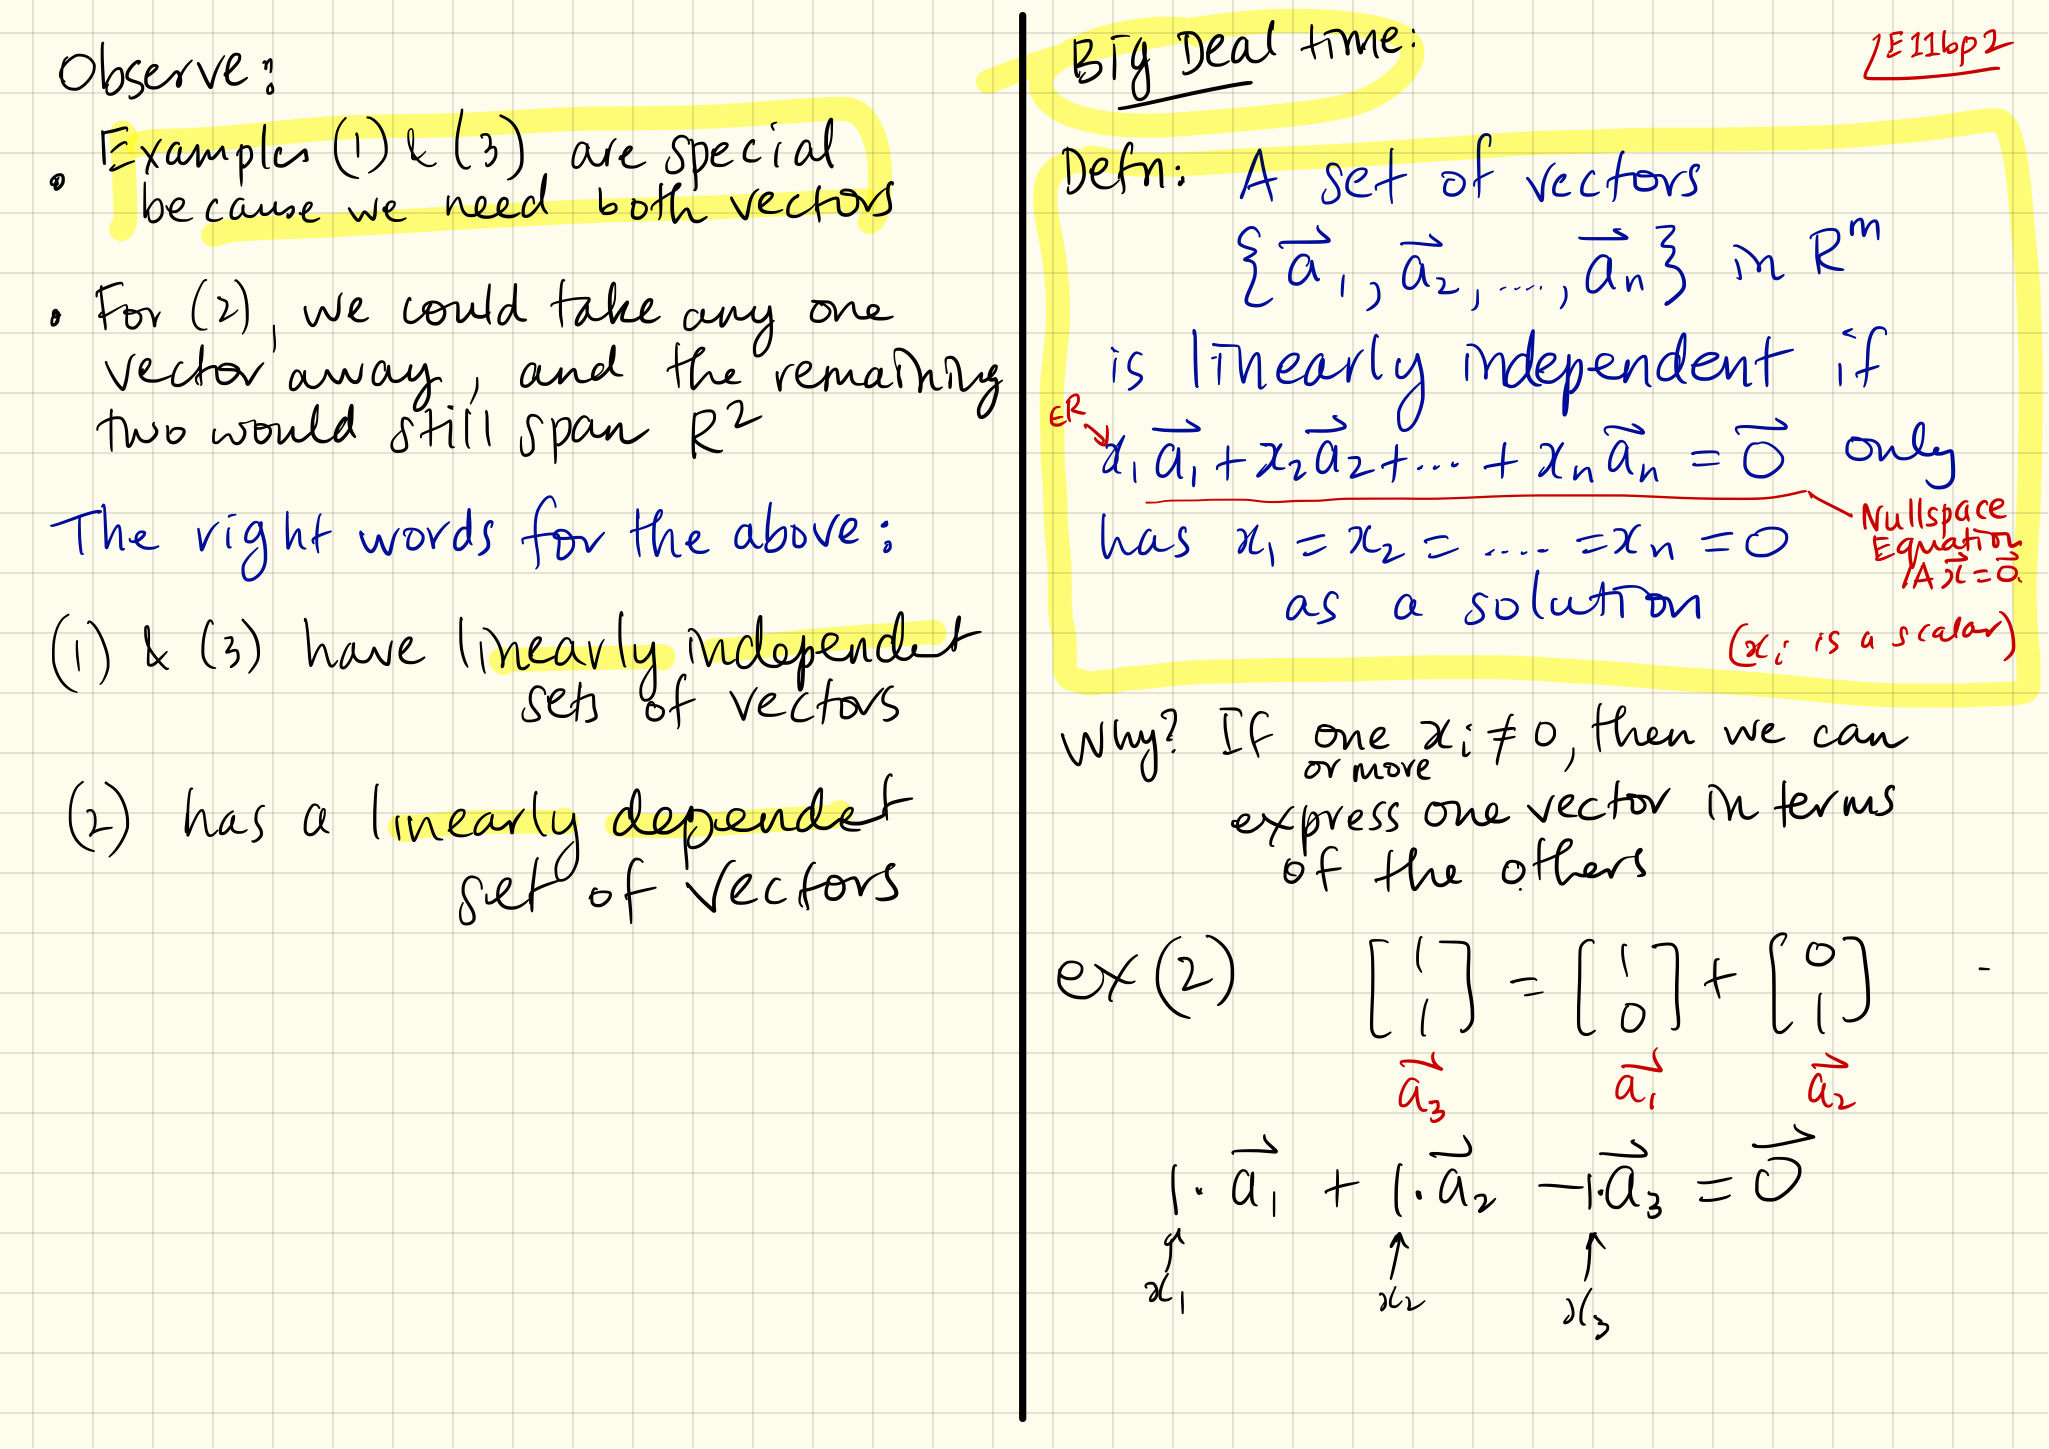 Observe:
• Examples (1) & (3) are special
because we need both vectors
• For (2), we could take any one
vector away, and the remaining
two would still span R²
The right words for the above:
(1) & (3) have linearly independent
sets of vectors
(2) has a linearly dependent
set of vectors
Big Deal time:
E11bp2
Defn: A set of vectors
{a⃗₁, a⃗₂, ...., a⃗ₙ} in Rᵐ
is linearly independent if
∈R
x₁a⃗₁ + x₂a⃗₂ + ... + xₙa⃗ₙ = 0⃗ only
has x₁ = x₂ = .... = xₙ = 0
as a solution
Nullspace
Equation
Ax⃗ = 0⃗
(xᵢ is a scalar)
Why? If one xᵢ ≠ 0, then we can
or more
express one vector in terms
of the others
ex (2) [1 1] = [1 0] + [0 1]
a⃗₃ a⃗₁ a⃗₂
1·a⃗₁ + 1·a⃗₂ −1·a⃗₃ = 0⃗
↑ ↑ ↑
x₁ x₂ x₃